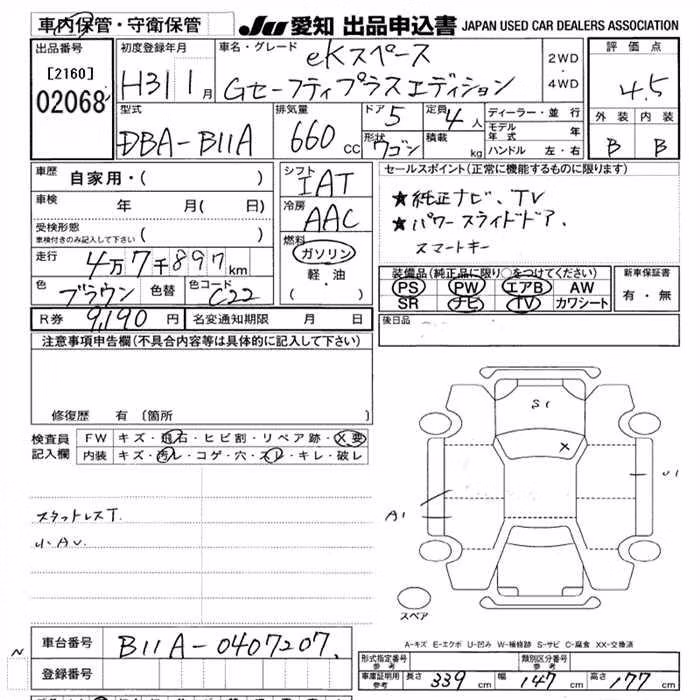 車内保管・守衛保管
JU 愛知 出品申込書 JAPAN USED CAR DEALERS ASSOCIATION
出品番号 初度登録年月 車名・グレード 評価点
[2160] eKスペース 2WD・4WD
02068 H31 1月 Gセーフティプラスエディション 4.5
型式 排気量 ドア 定員 ディーラー・並行 外装 内装
DBA-B11A 660 CC 5 4人 モデル年式 年 B B
形状 ワゴン 積載 kg ハンドル 左・右
車歴 自家用・( ) シフト IAT セールスポイント(正常に機能するものに限ります)
車検 年 月( 日) 冷房 AAC ★純正ナビ、TV
受検形態 車検付きのみ記入して下さい ( ) ★パワースライドドア、
スマートキー
走行 4万7千897km 燃料 ガソリン・軽油 ( ・ )
装備品(純正品に限り○をつけてください) 新車保証書
色 ブラウン 色替 色コード C22 PS PW エアB AW 有・無
SR ナビ TV カワシート
R券 9,190円 名変通知期限 月 日 後日品
注意事項申告欄(不具合内容等は具体的に記入して下さい)
修復歴 有〔箇所 〕
検査員記入欄 FW キズ・飛石・ヒビ割・リペア跡・X要
内装 キズ・汚レ・コゲ・穴・スレ・キレ・破レ
S1
X
U1
A1
スタットレスT.
小A.U.
スペア
A-キズ E-エクボ U-凹み W-補修跡 S-サビ C-腐食 XX-交換済
N
車台番号 B11A-0407207
登録番号
形式指定番号 参考 類別区分番号 参考
車庫証明用 参考 長さ 339cm 幅 147cm 高さ 177cm